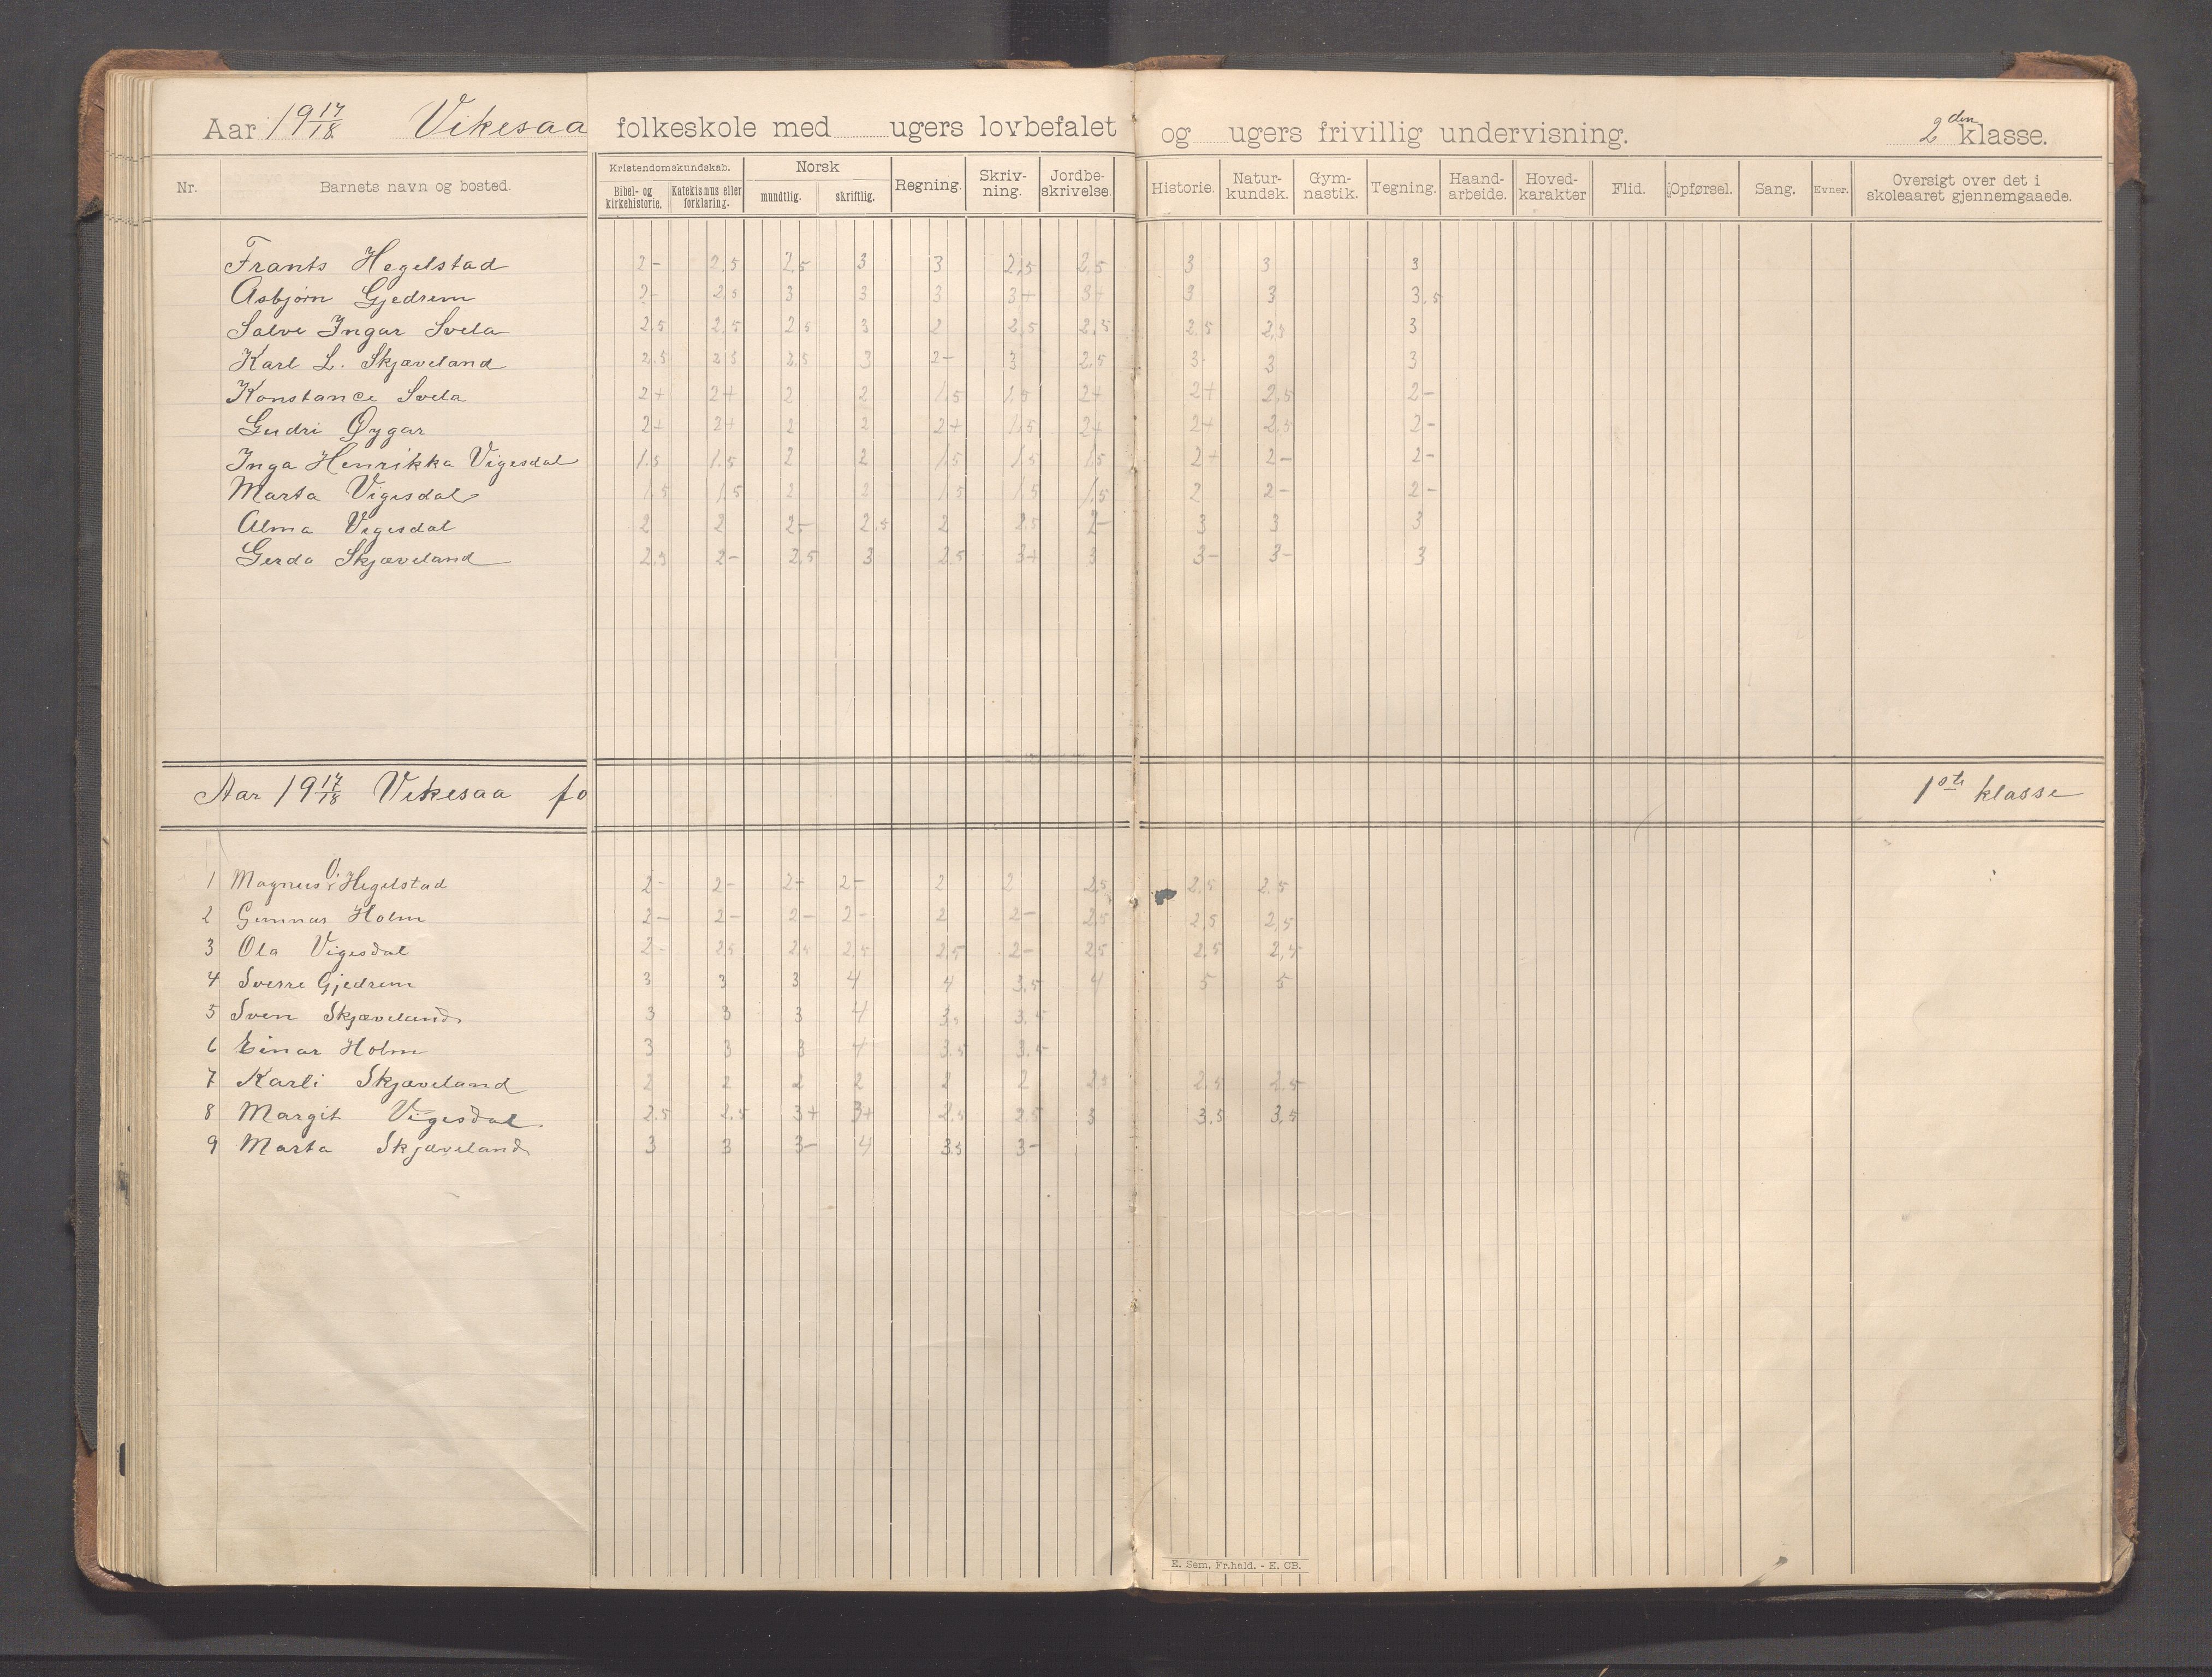 Aar 19 17/18 Vikesaa folkeskole med ugers lovbefalet og ugers frivillig undervisning. 2den klasse.
Nr. Barnets navn og bosted. Kristendomskundskab. Bibel- og kirkehistorie. Katekismus eller forklaring. Norsk mundtlig. skriftlig. Regning. Skrivning. Jordbeskrivelse. Historie. Naturkundsk. Gymnastik. Tegning. Haandarbeide. Hovedkarakter Flid. Opførsel. Sang. Evner. Oversigt over det i skoleaaret gjennemgaaede.
Frants Hegelstad 2- 2,5 2,5 3 3 2,5 2,5 3 3 3
Asbjørn Gjedrem 2- 2,5 3 3 3 3+ 3+ 3 3 3,5
Salve Ingar Svela 2,5 2,5 2,5 3 2 2,5 2,5 2,5 2,5 3
Karl L. Skjæveland 2,5 2,5 2,5 3 2- 3 2,5 3- 3 3
Konstance Svela 2+ 2+ 2 2 1,5 1,5 2+ 2+ 2,5 2-
Gudri Øygar 2+ 2+ 2 2 2+ 1,5 2+ 2+ 2,5 2-
Inga Henrikka Vigesdal 1,5 1,5 2 2 1,5 1,5 1,5 2+ 2- 2-
Marta Vigesdal 1,5 1,5 2 2 1,5 1,5 1,5 2 2- 2-
Alma Vigesdal 2 2 2- 2,5 2 2,5 2- 3 3 3
Gerda Skjæveland 2,5 2- 2,5 3 2,5 3+ 3 3- 3- 3
Aar 19 17/18 Vikesaa fo 1ste klasse
1 Magnus O. Hegelstad 2- 2- 2- 2- 2 2 2,5 2,5 2,5
2 Gunnar Holm 2- 2- 2- 2- 2 2- 2,5 2,5 2,5
3 Ola Vigesdal 2- 2,5 2,5 2,5 2,5 2- 2,5 2,5 2,5
4 Sverre Gjedrem 3 3 3 4 4 3,5 4 5 5
5 Sven Skjæveland 3 3 3 4 3,5 3,5
6 Einar Holm 3 3 3 4 3,5 3,5
7 Karli Skjæveland 2 2 2 2 2 2 2,5 2,5 2,5
8 Margit Vigesdal. 2,5 2,5 3+ 3+ 2,5 2,5 3 3,5 3,5
9 Marta Skjæveland 3 3 3- 4 3,5 3-
E. Sem, Fr.hald. - E. CB.